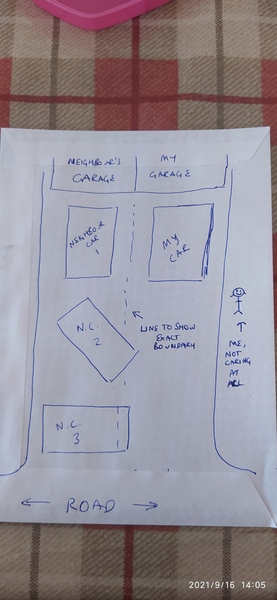 NEIGHBOUR'S
GARAGE
MY
GARAGE
NEIGHBOUR
CAR
1
MY
CAR
N.C.
2
LINE TO SHOW
EXACT
BOUNDARY
ME,
NOT
CARING
AT
ALL
N.C.
3
ROAD
2021/9/16 14:05